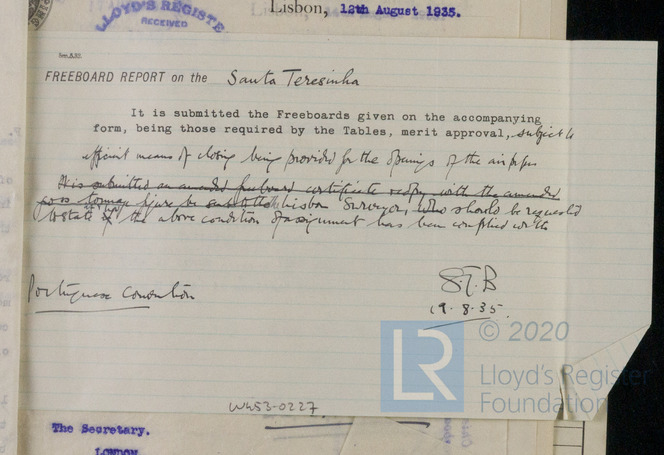 Lisbon, 12th August 1935.
LLOYD'S REGISTE
RECEIVED
FREEBOARD REPORT on the Santa Teresinha
It is submitted the Freeboards given on the accompanying
form, being those required by the Tables, merit approval, subject to
efficient means of closing being provided for the openings of the air pipes
It is submitted an amended freeboard certificate with the amended
tonnage figure be sent to the Lisbon Surveyors, who should be requested
to state if the above condition of assignment has been complied with
Portuguese Convention
S.F.B
19.8.35.
© 2020
LR
Lloyd's Register
Foundation
W453-0227
The Secretary.
LONDON